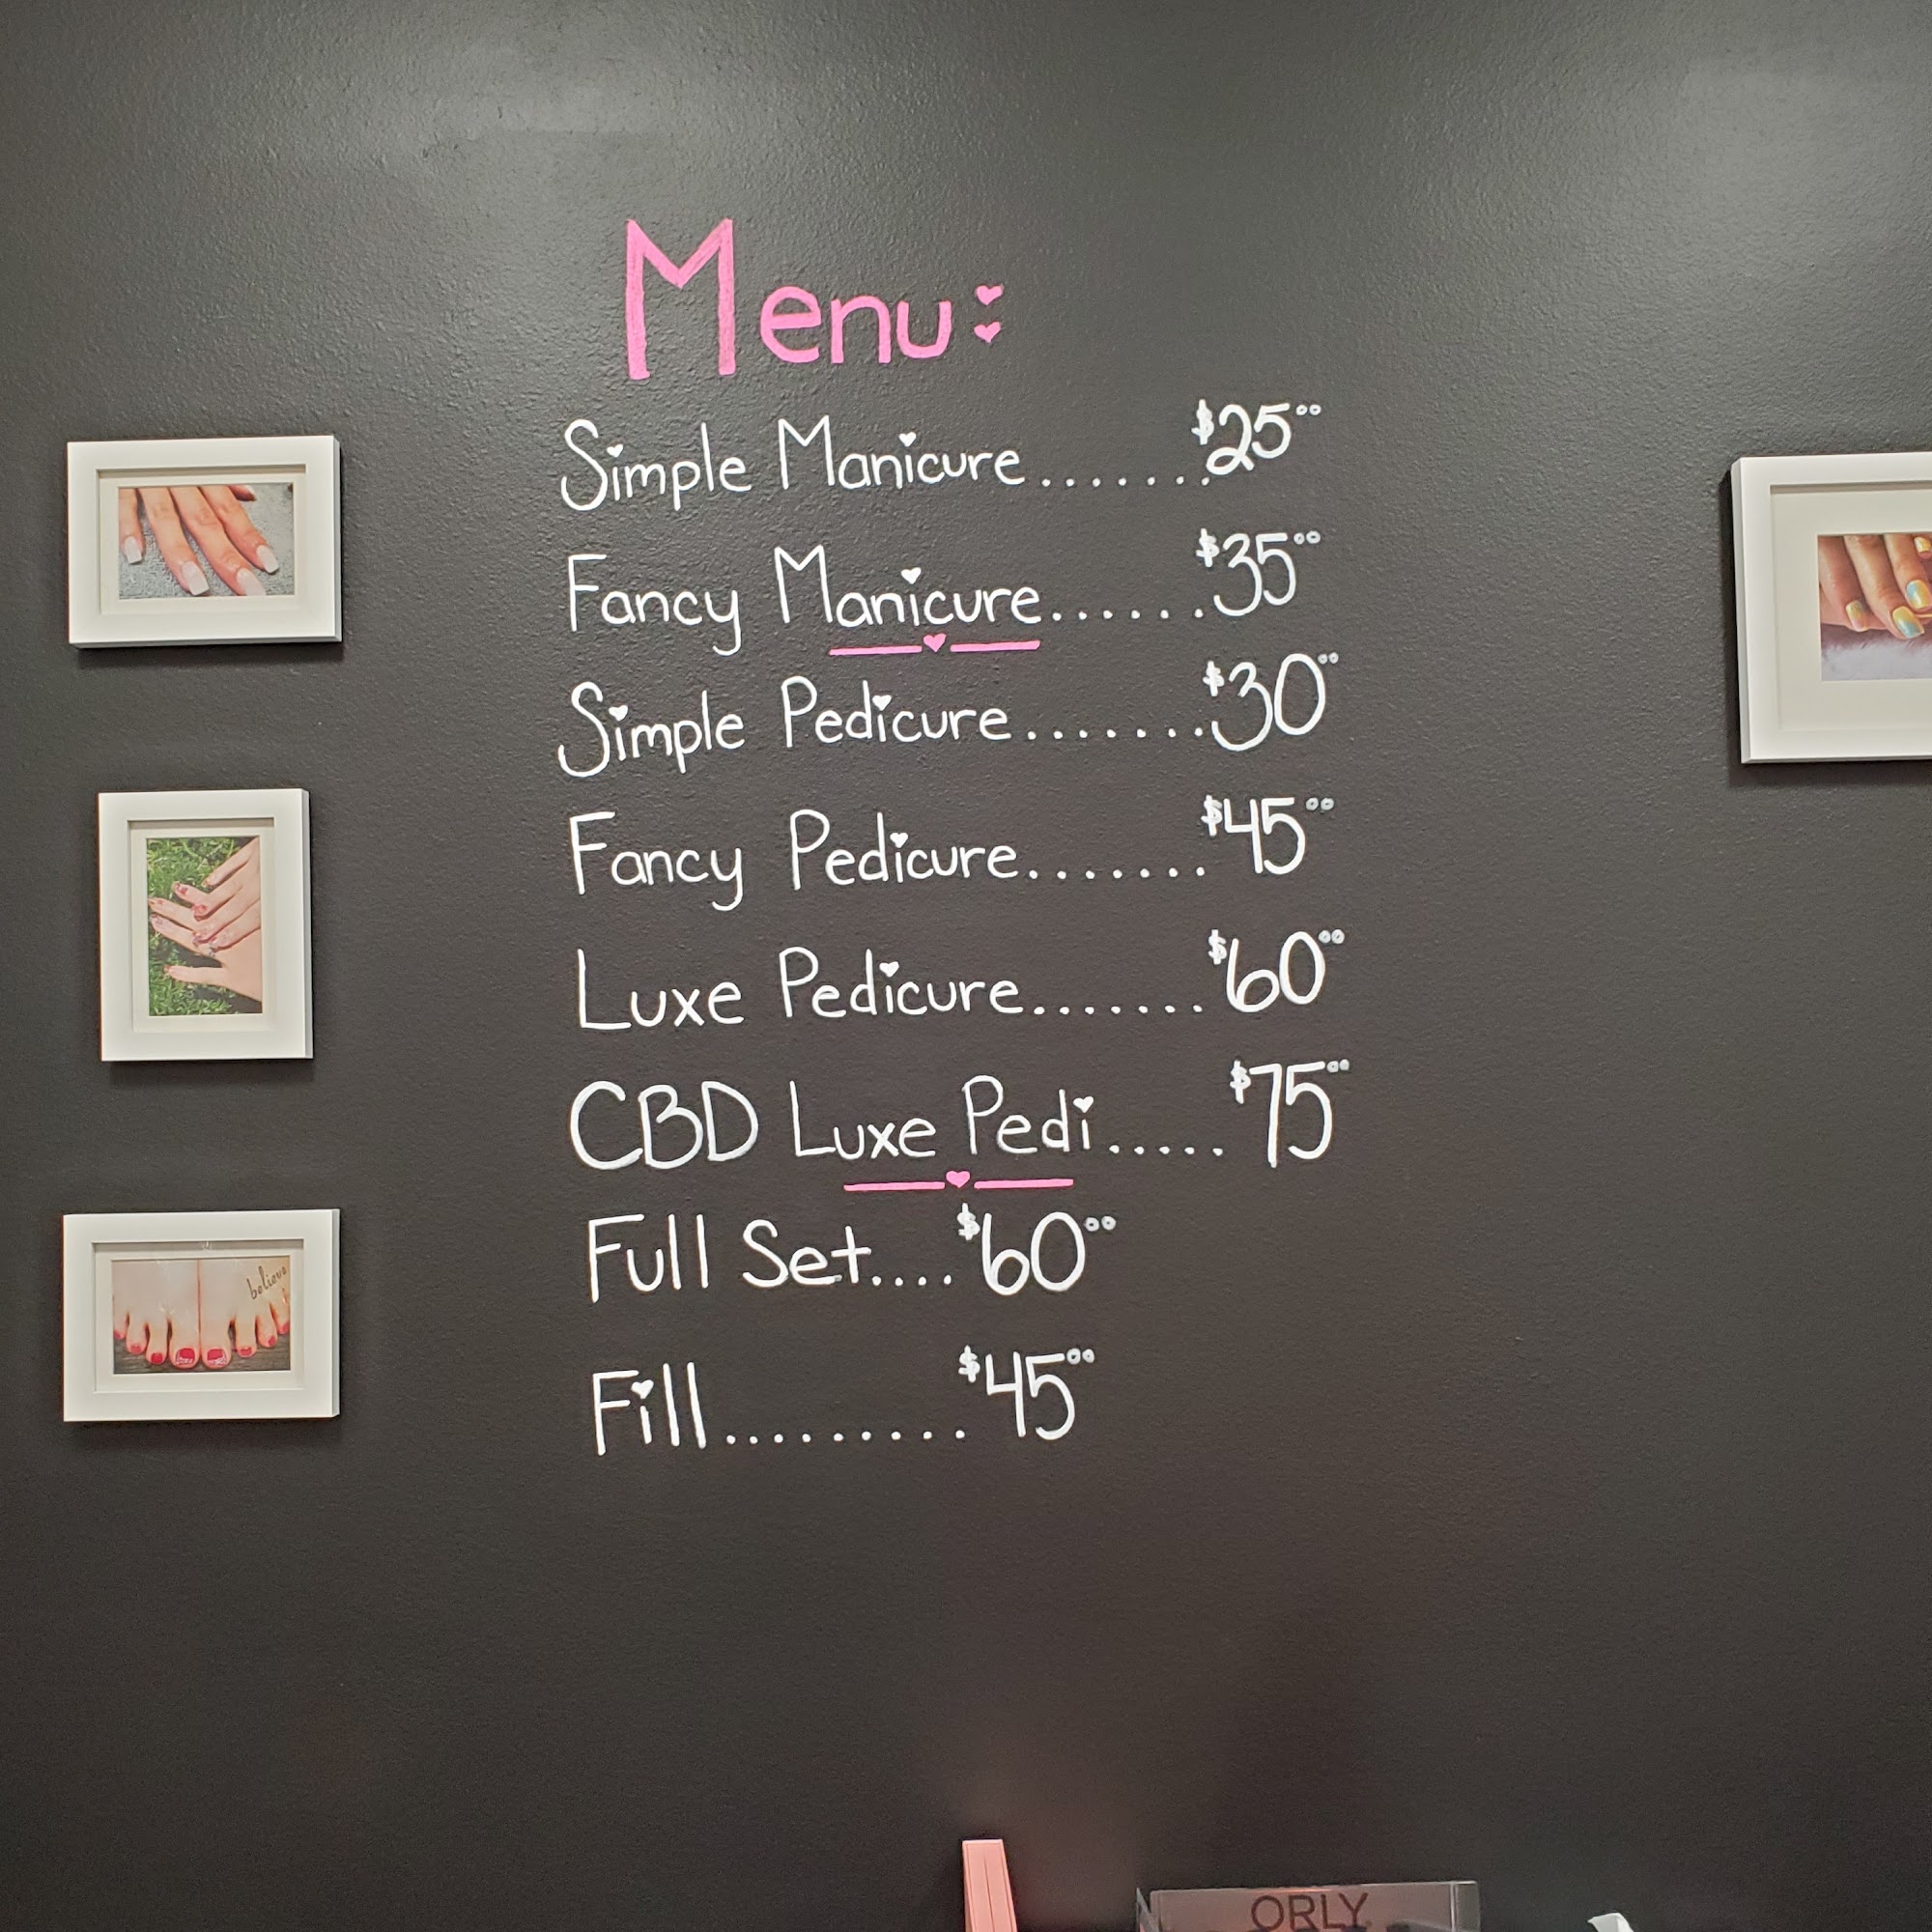 Menu:
Simple Manicure.......$25⁰⁰
Fancy Manicure......$35⁰⁰
Simple Pedicure.......$30⁰⁰
Fancy Pedicure.......$45⁰⁰
Luxe Pedicure.......$60⁰⁰
CBD Luxe Pedi.....$75⁰⁰
Full Set....$60⁰⁰
Fill.........$45⁰⁰
believe
ORLY